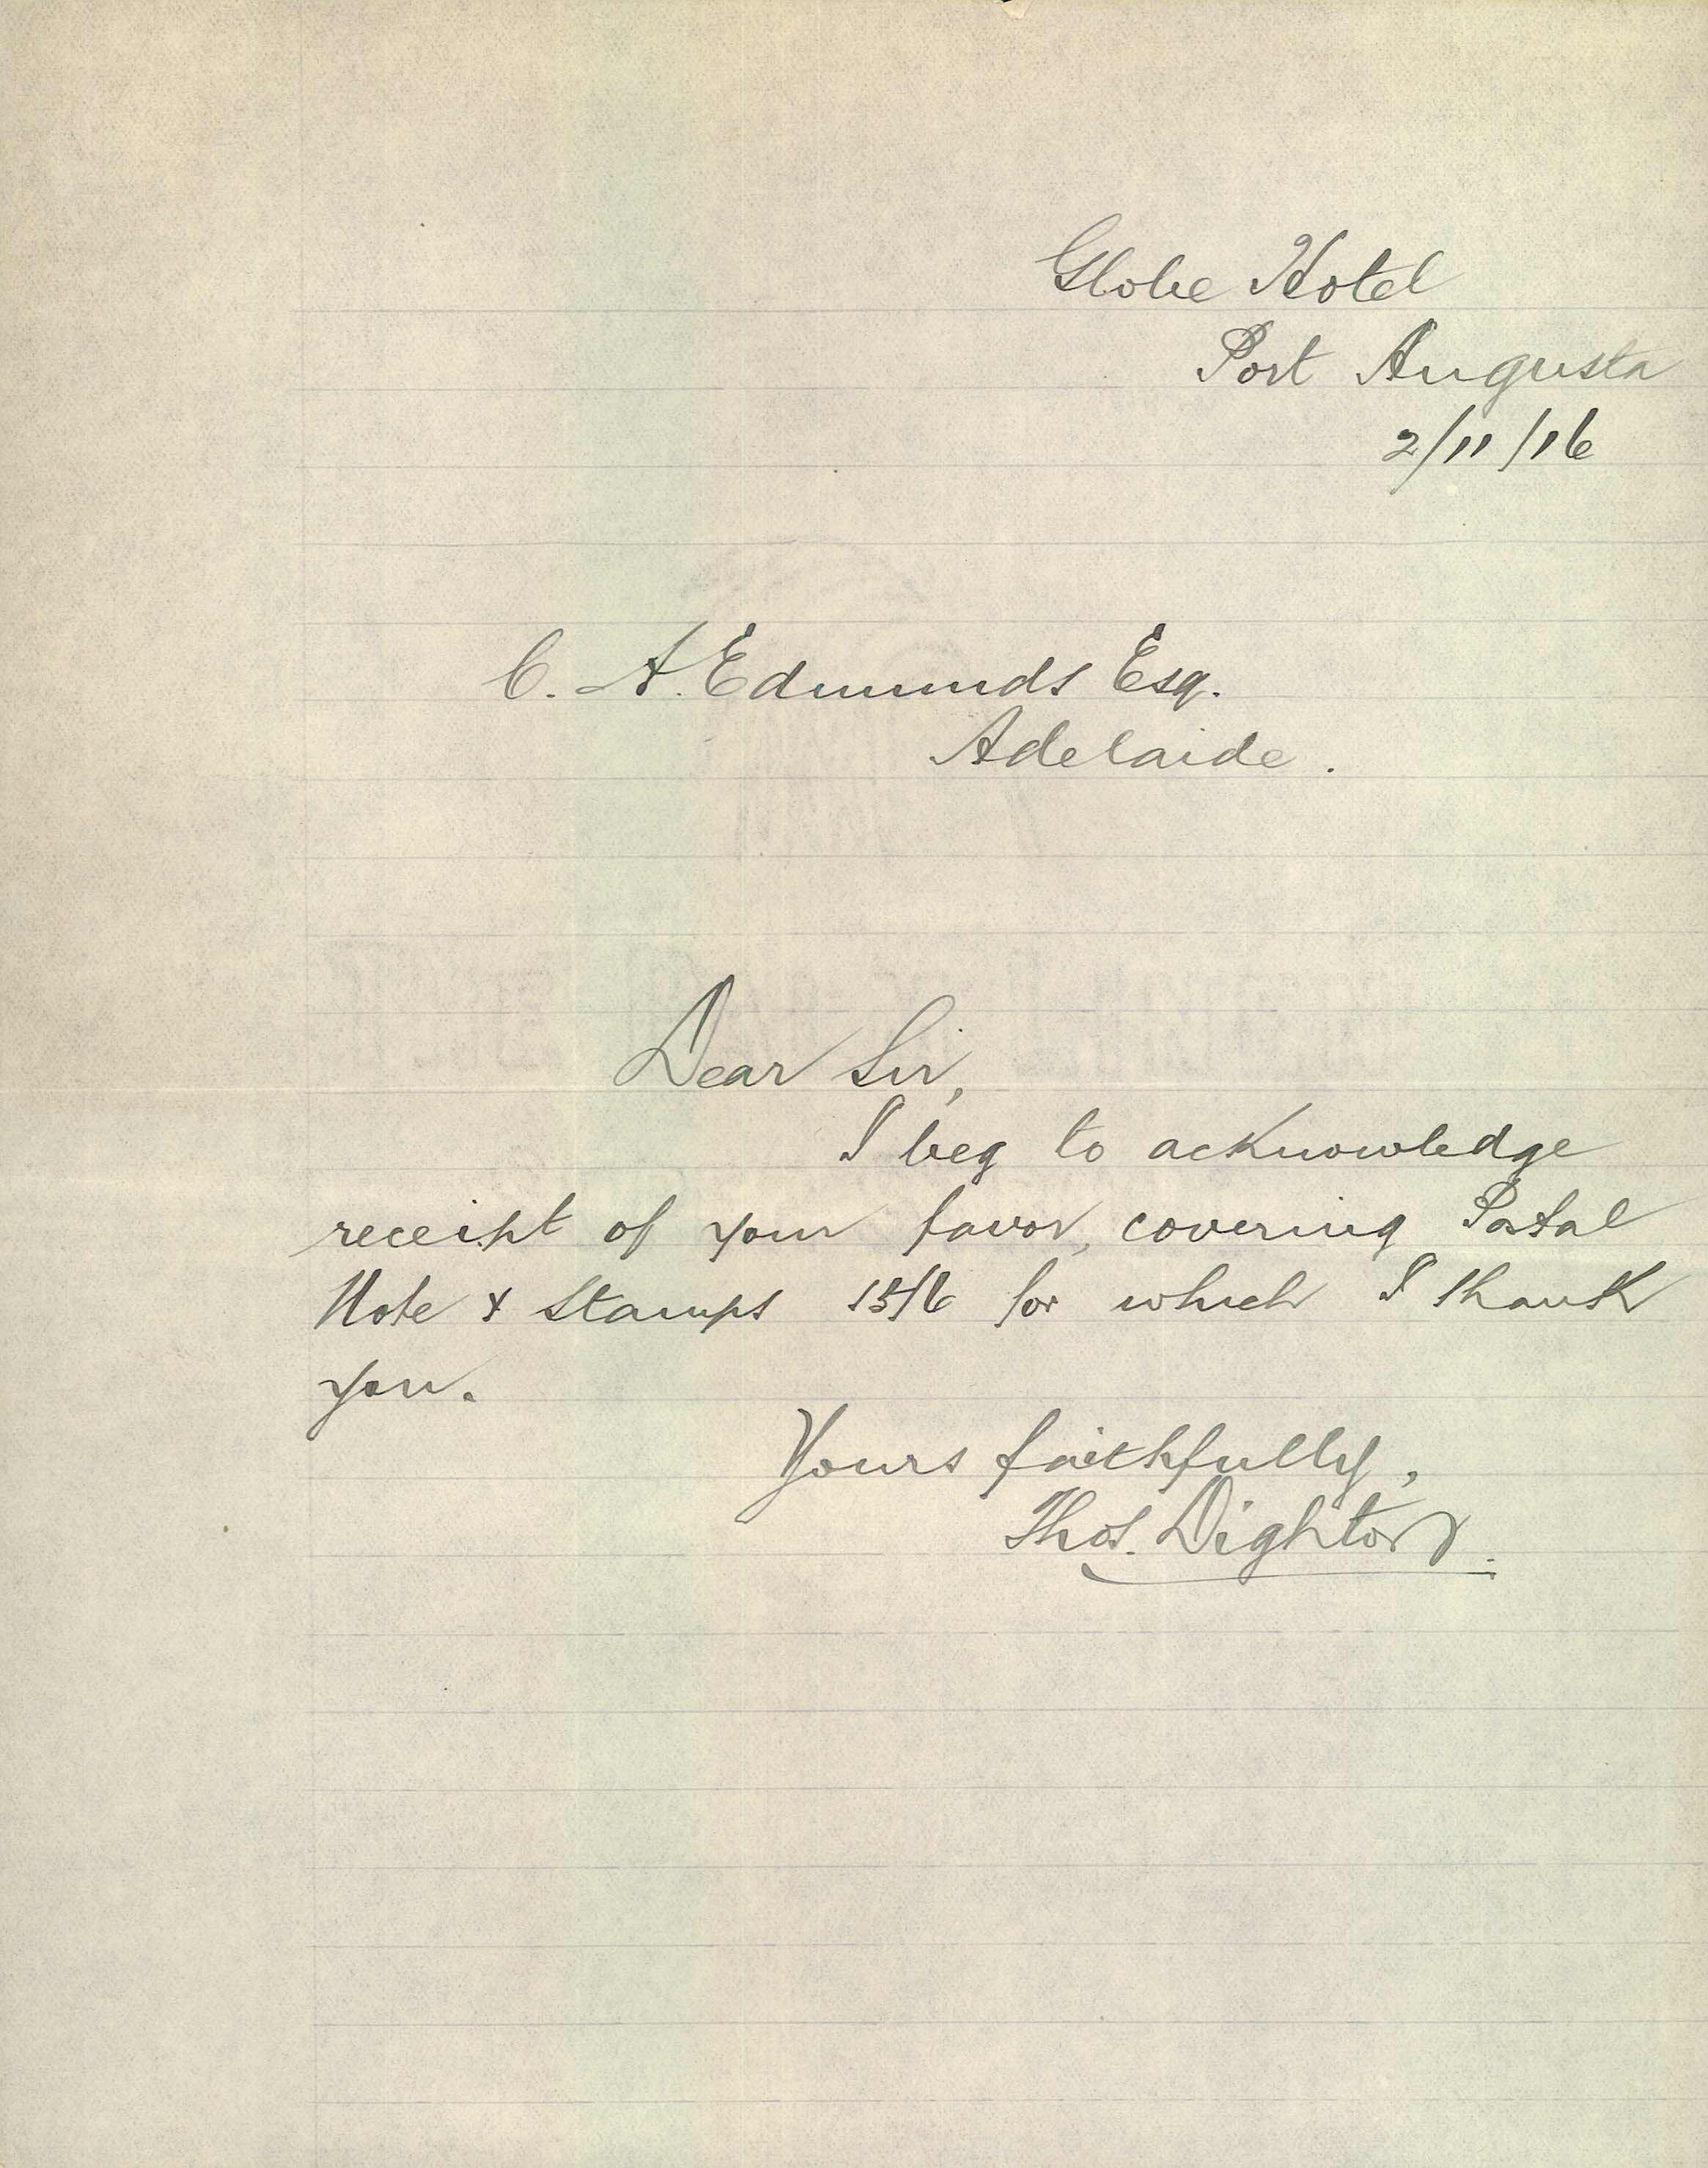 Globe Hotel
Port Augusta
2/11/16
C. A. Edmunds Esq.
Adelaide.
Dear Sir,
I beg to acknowledge
receipt of your favor, covering Postal
Note & Stamps 15/6 for which I thank
you.
Yours faithfully,
Thos. Dighton.